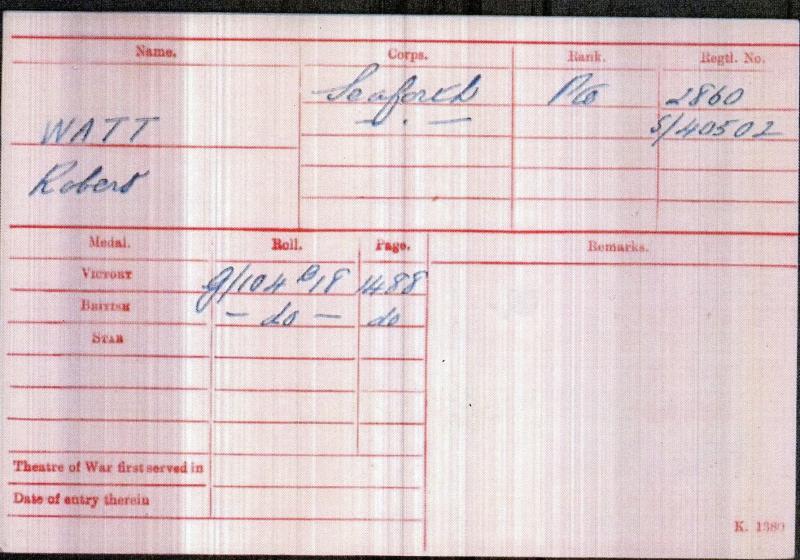 Name. Corps. Rank. Regtl. No.
Seaforth Pte 2860
WATT - " - S/40502
Robert
Medal. Roll. Page. Remarks.
VICTORY G/104 B18 1488
BRITISH - do - do
STAR
Theatre of War first served in
Date of entry therein
K. 1380